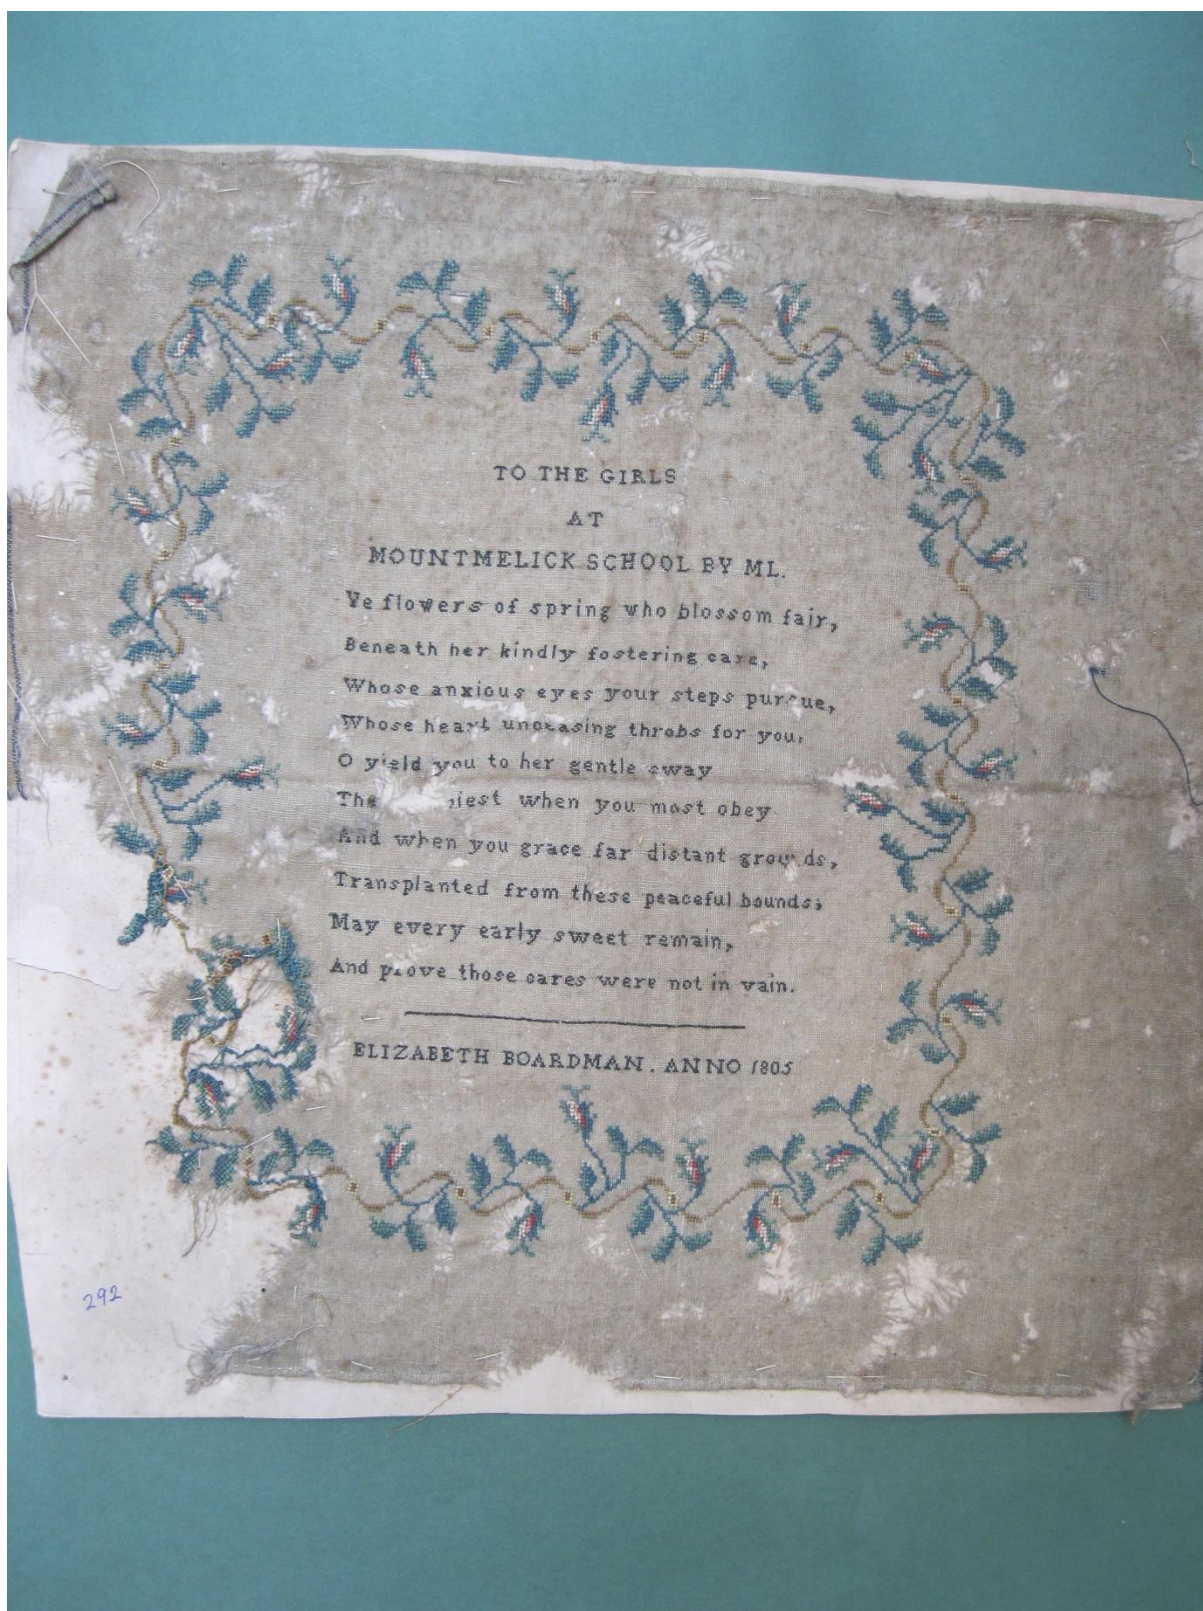 TO THE GIRLS
AT
MOUNTMELICK SCHOOL BY ML.
Ye flowers of spring who blossom fair,
Beneath her kindly fostering care,
Whose anxious eyes your steps pursue,
Whose heart unceasing throbs for you,
O yield you to her gentle sway
when you most obey
And when you grace far distant grounds,
Transplanted from these peaceful bounds;
May every early sweet remain,
And prove those cares were not in vain.
ELIZABETH BOARDMAN. ANNO 1805
292